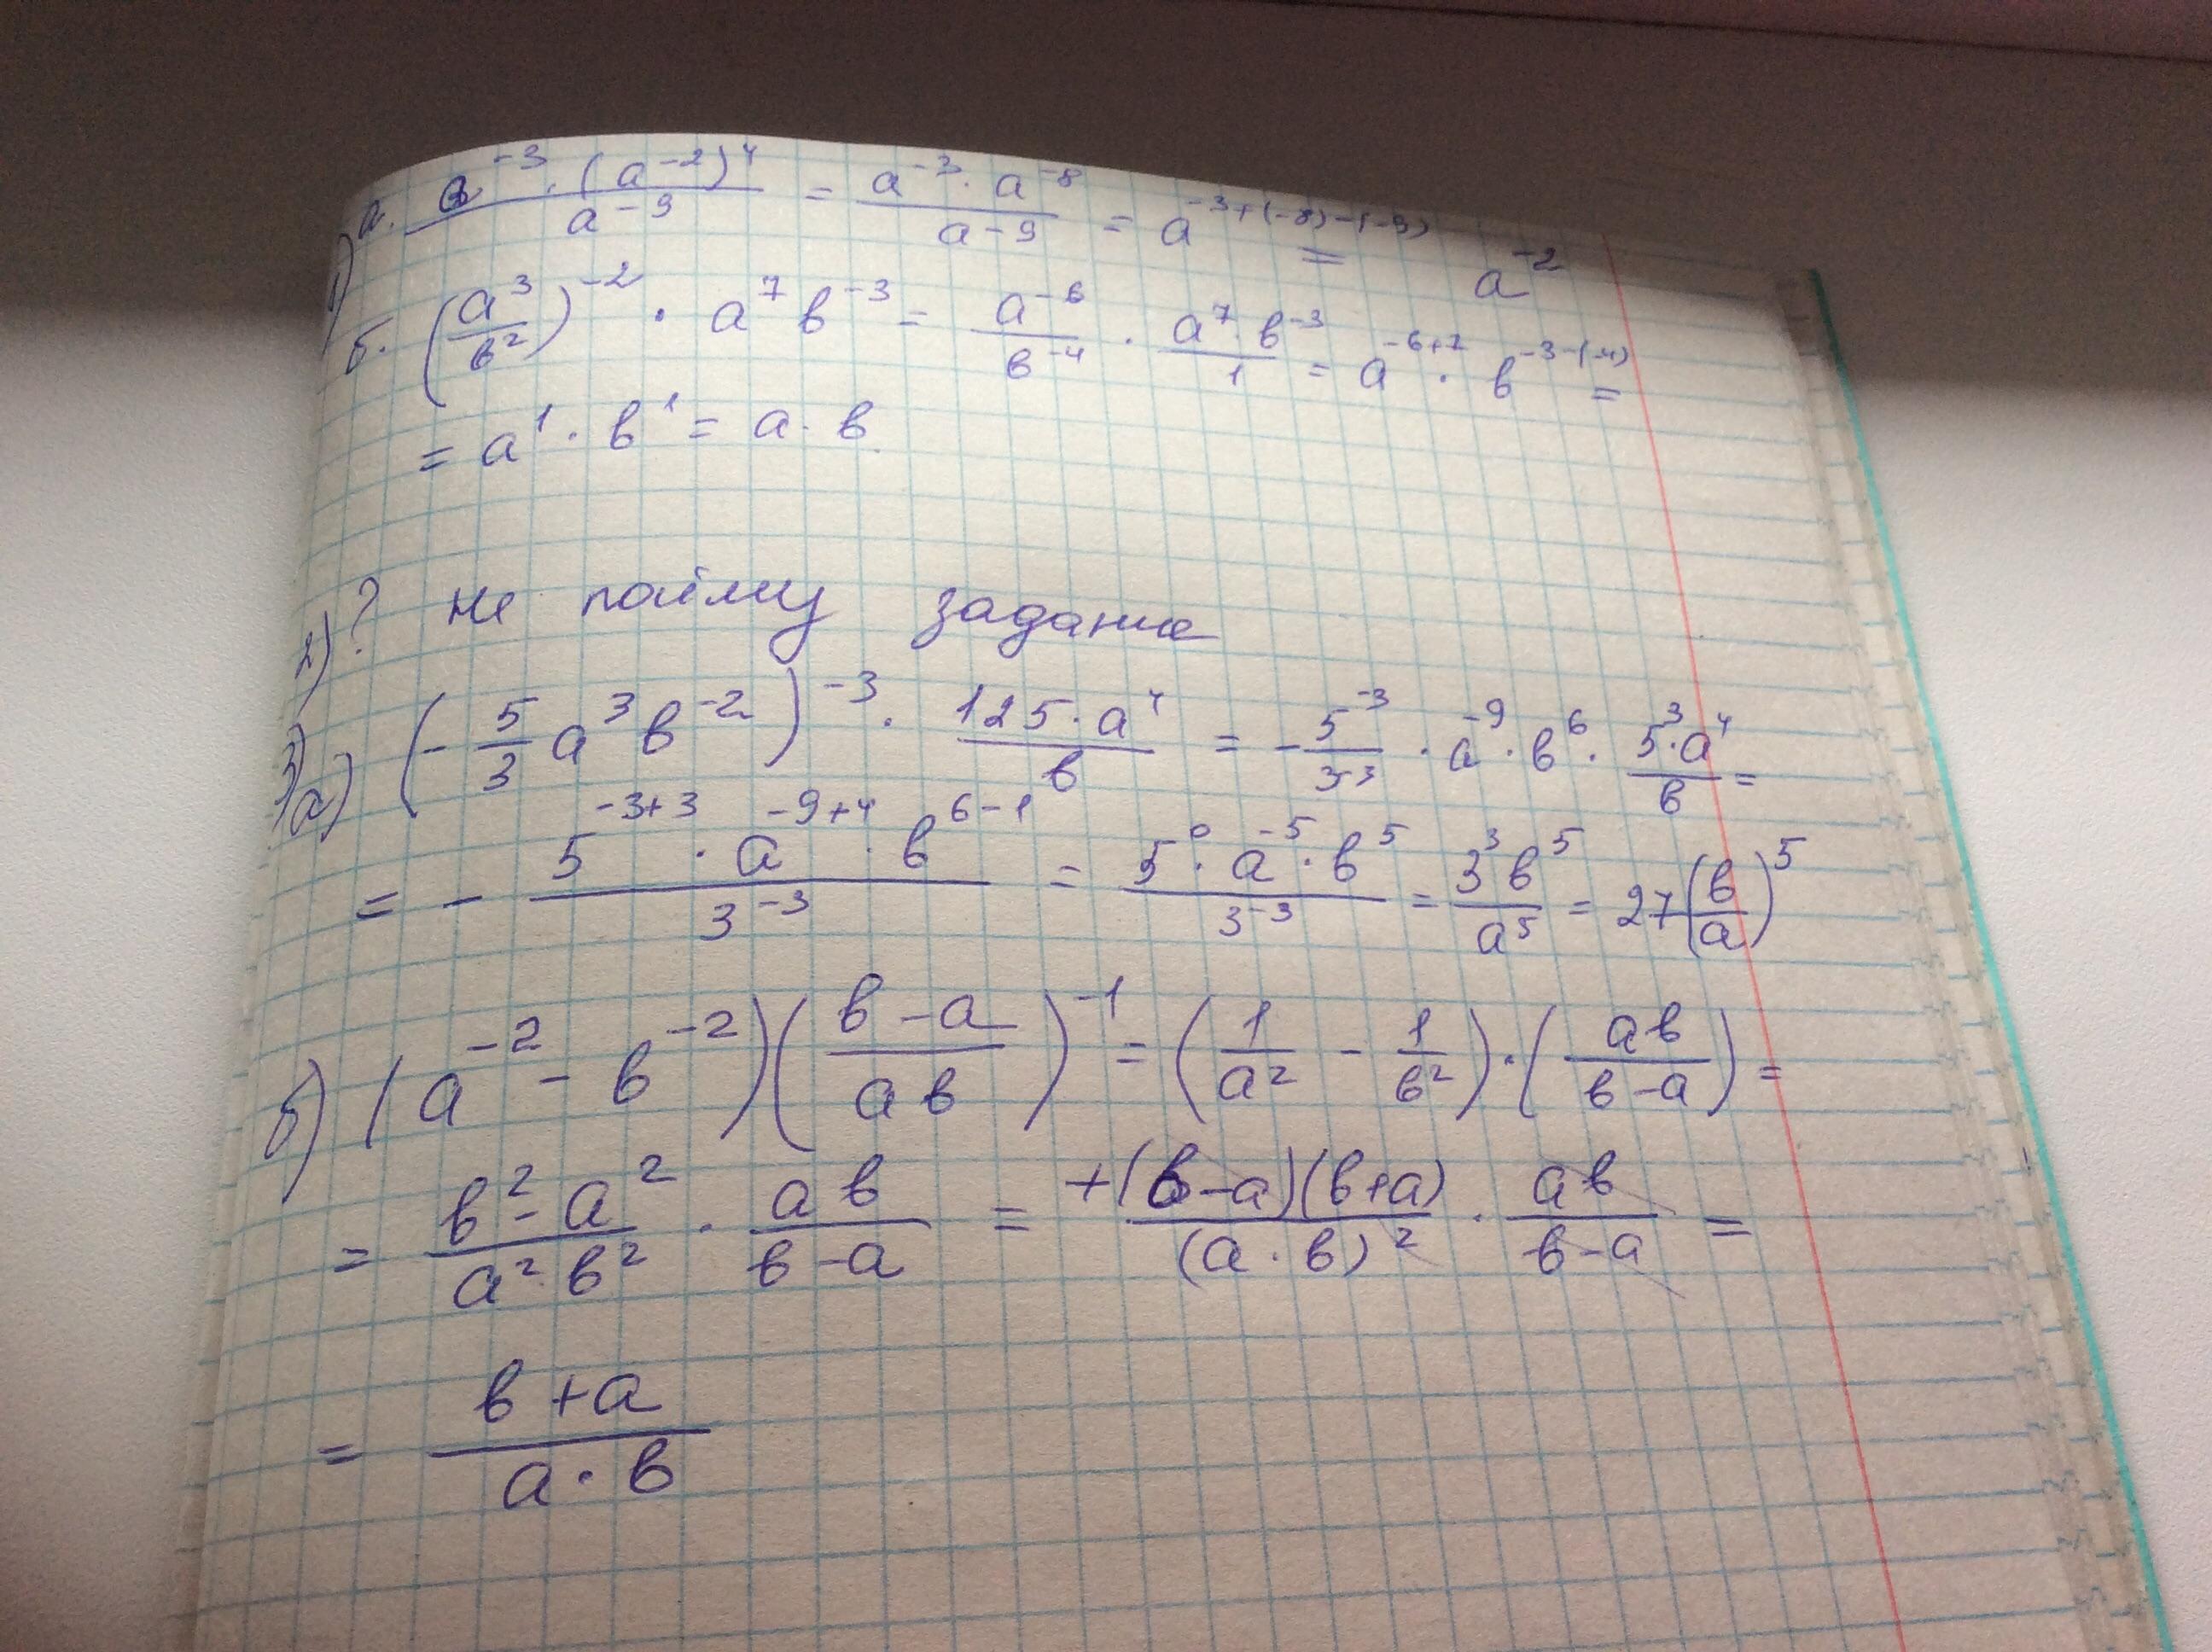 1) а. a^-3 · (a^-2)^4 / a^-9 = a^-3 · a^-8 / a-9 = a^-3+(-8)-(-9) = a^-2
б. (a^3/в^2)^-2 · a^7 в^-3 = a^-6/в^-4 · a^7 · в^-3/1 = a^-6+7 · в^-3-(-4) =
= a^1 · в^1 = a · в
2) ? не пойму задание
3) а) (- 5/3 a^3 в^-2)^-3 · 125 · a^4/в = - 5^-3/3^-3 · a^-9 · в^6 · 5^3 · a^4/в =
= - 5^-3+3 · a^-9+4 · в^6-1 / 3^-3 = 5^0 · a^-5 · в^5 / 3^-3 = 3^3 в^5/a^5 = 27 (в/a)^5
б) (a^-2 - в^-2) (в-a/aв)^-1 = (1/a^2 - 1/в^2) · (aв/в-a) =
= в^2 - a^2 / a^2 · в^2 · aв/в-a = +(в-a)(в+a) / (a · в)^2 · aв/в-a =
= в+a / a · в